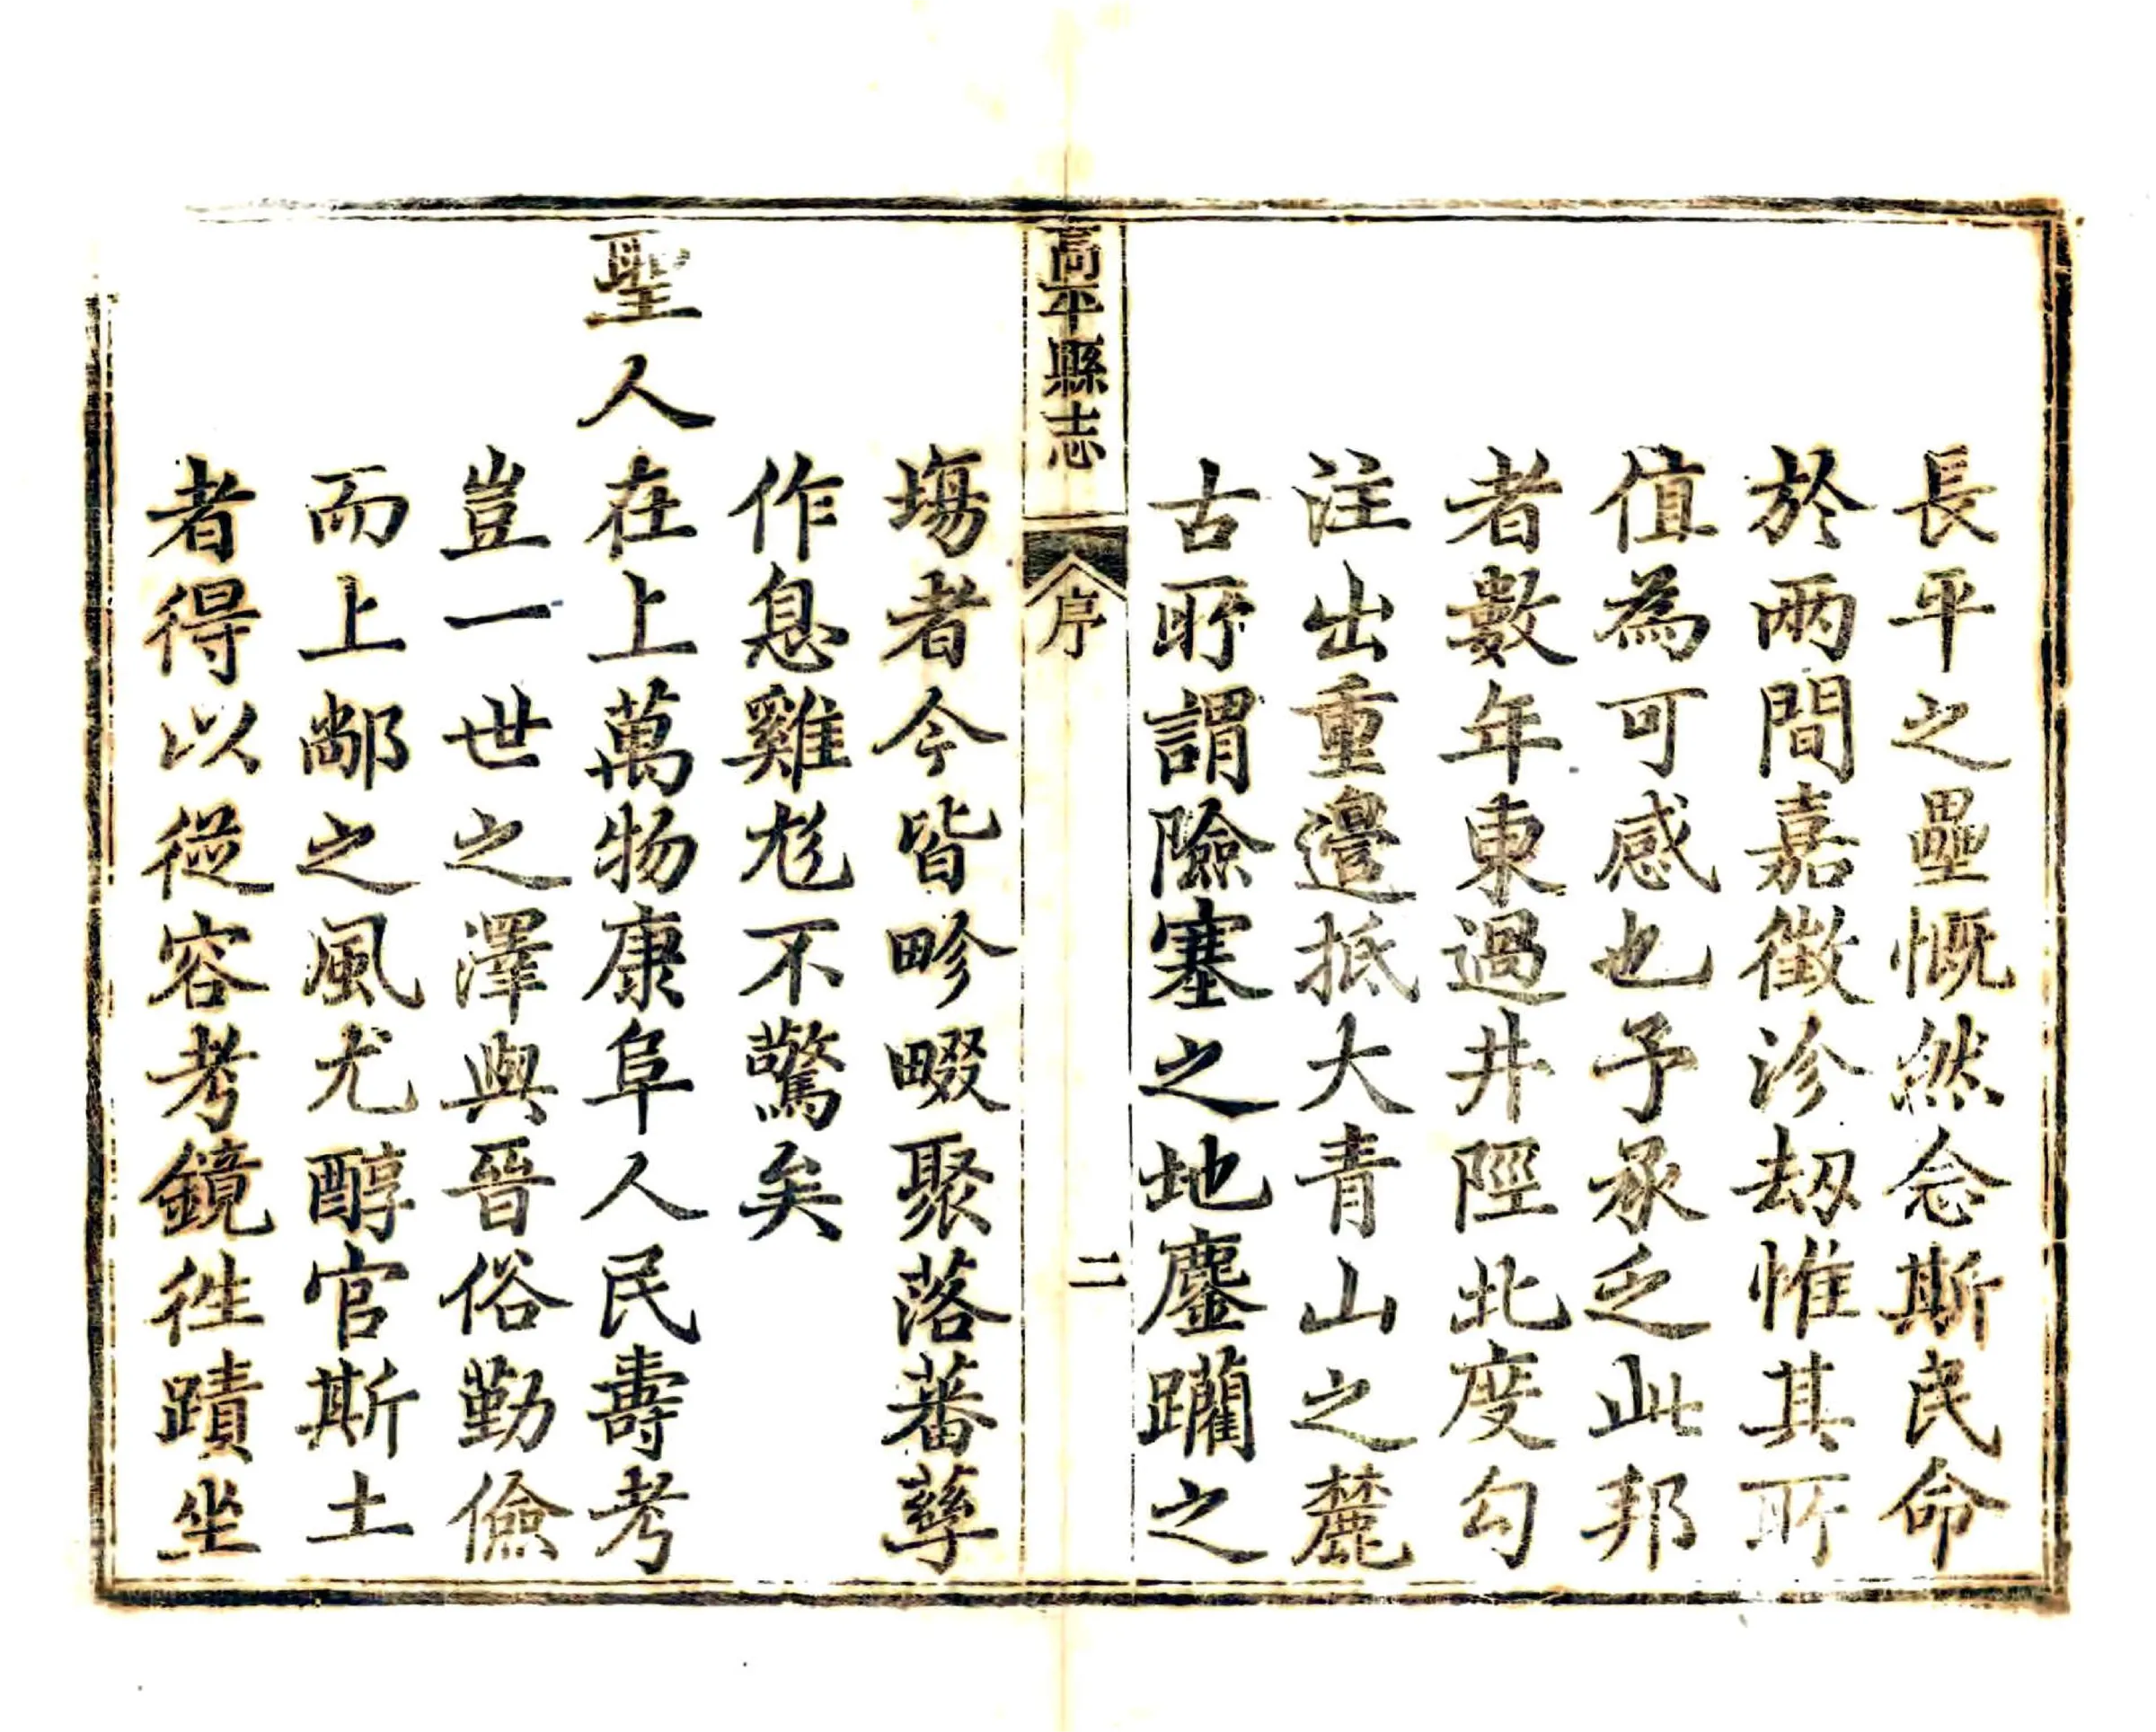 長平之壘慨然念斯民命
於兩間嘉徵沴劫惟其所
值為可感也予承乏此邦
者數年東過井陘北度勾
注出重邊抵大青山之麓
古所謂險塞之地鏖躪之
高平縣志
序
二
塲者今皆畛畷聚落蕃孳
作息雞尨不驚矣
聖人在上萬物康阜人民壽考
豈一世之澤與晉俗勤儉
而上鄗之風尤醇官斯土
者得以從容考鏡徃蹟坐